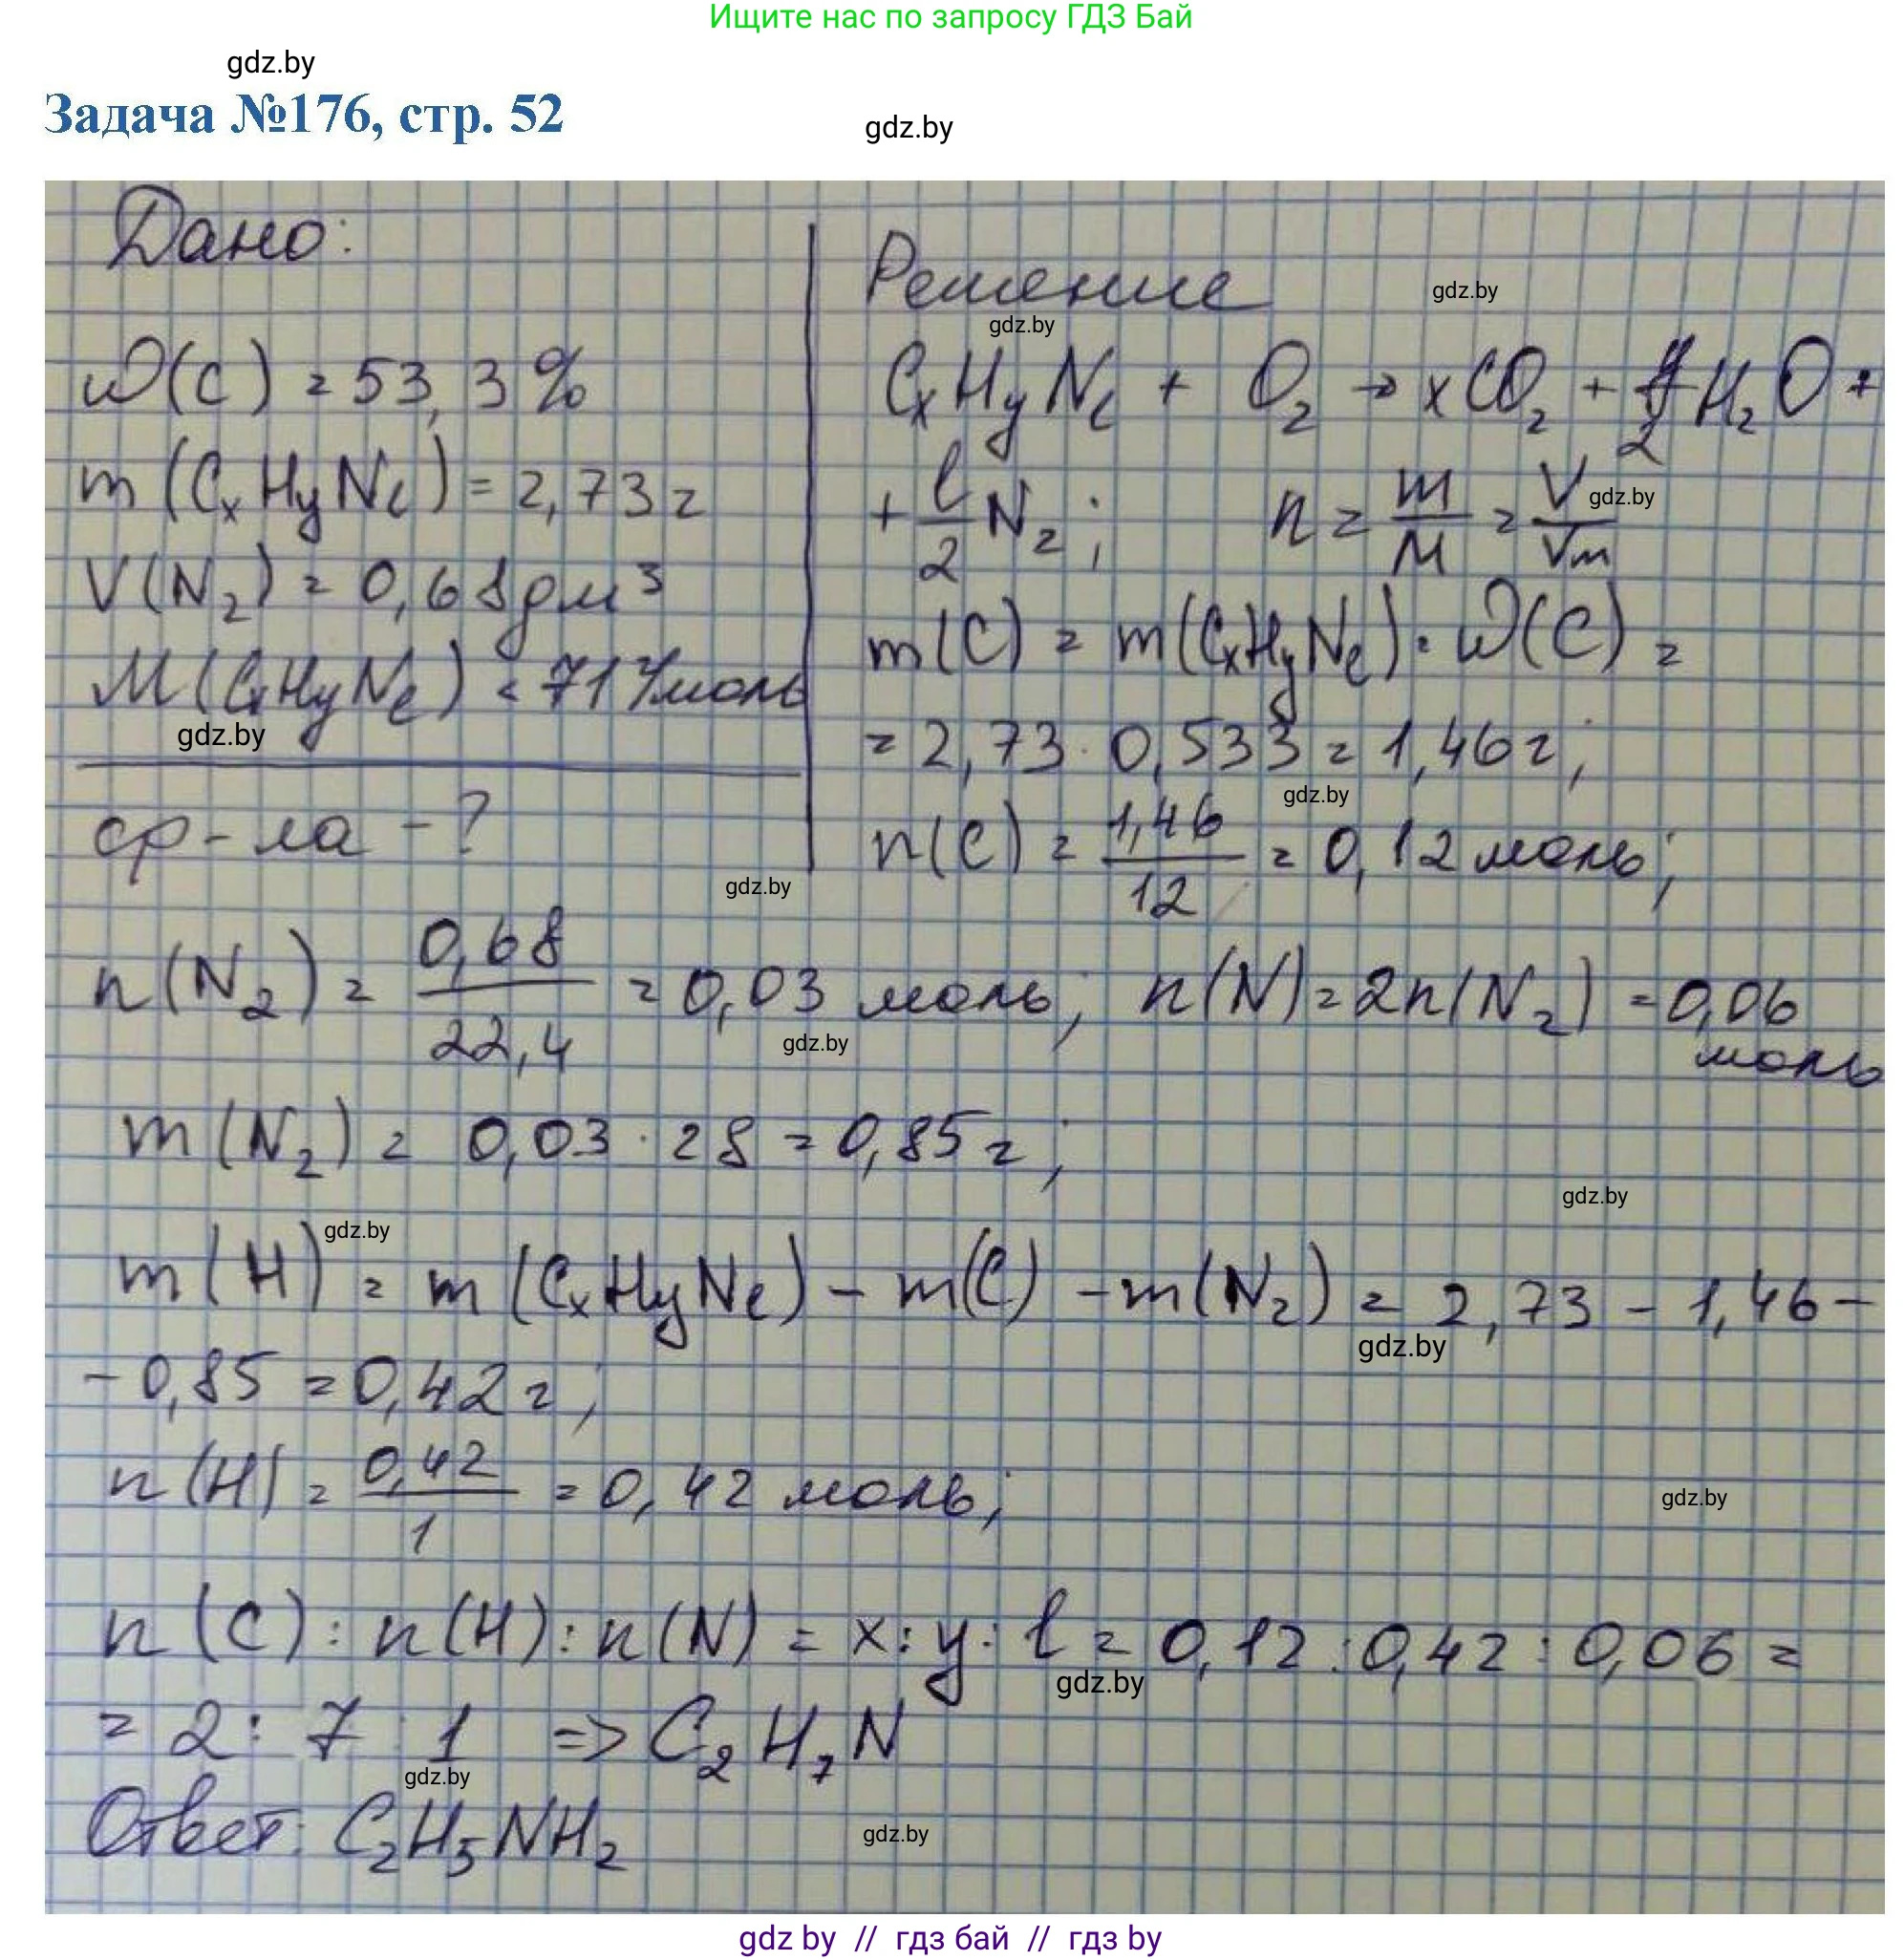 Ищите нас по запросу ГДЗ Бай
gdz.by
Задача №176, стр. 52
gdz.by
Дано:
ω(C) = 53,3%
m(CxHyNl) = 2,73г
V(N2) = 0,68дм³
M(CxHyNl) < 71 г/моль
gdz.by
ф-ла - ?
Решение
gdz.by
gdz.by
CxHyNl + O2 → xCO2 + y/2 H2O +
+ l/2 N2; n = m/M = V/Vm
gdz.by
m(C) = m(CxHyNl)·ω(C) =
= 2,73·0,533 = 1,46г;
gdz.by
n(C) = 1,46/12 = 0,12 моль;
gdz.by
n(N2) = 0,68/22,4 = 0,03 моль; n(N) = 2n(N2) = 0,06 моль
gdz.by
m(N2) = 0,03·28 = 0,85г;
gdz.by
gdz.by
m(H) = m(CxHyNl) - m(C) - m(N2) = 2,73 - 1,46 -
gdz.by
- 0,85 = 0,42г;
n(H) = 0,42/1 = 0,42 моль;
gdz.by
n(C) : n(H) : n(N) = x : y : l = 0,12 : 0,42 : 0,06 =
gdz.by
= 2 : 7 : 1 => C2H7N
gdz.by
Ответ: C2H5NH2
gdz.by
gdz by // гдз бай // гдз by